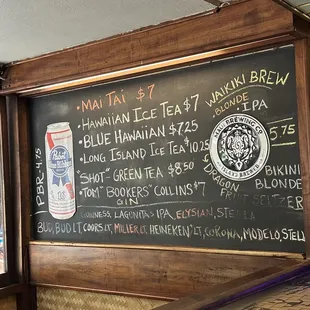 MAI TAI $7
HAWAIIAN ICE TEA $7
BLUE HAWAIIAN $7.25
LONG ISLAND ICE TEA $10.25
"SHOT" GREEN TEA $8.50
TOM "BOOKERS" COLLINS $7
GIN
PBR 4.75
Pabst
Blue Ribbon
WAIKIKI BREW
BLONDE
IPA
5.75
BREWING CO.
BIKINI
BLONDE
DRAGON
FRUIT SELTZER
GUINNESS, LAGUNITAS IPA, ELYSIAN, STELLA
BUD, BUD LT, COORS LT, MILLER LT, HEINEKEN LT, CORONA, MODELO, STELL